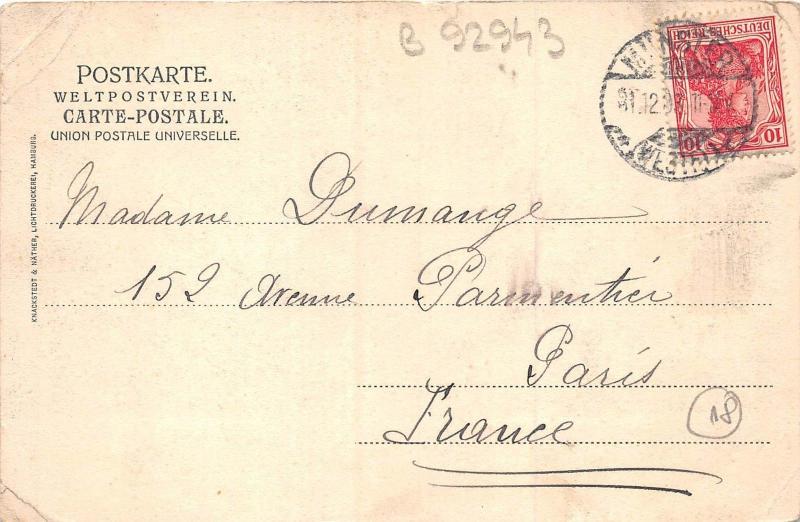 B 92943
DEUTSCHES REICH
10
10
POSTKARTE.
WELTPOSTVEREIN.
CARTE-POSTALE.
UNION POSTALE UNIVERSELLE.
KNACKSTEDT & NÄTHER, LICHTDRUCKEREI, HAMBURG.
Madame Dumange
152 Avenue Parmentier
Paris
France
18